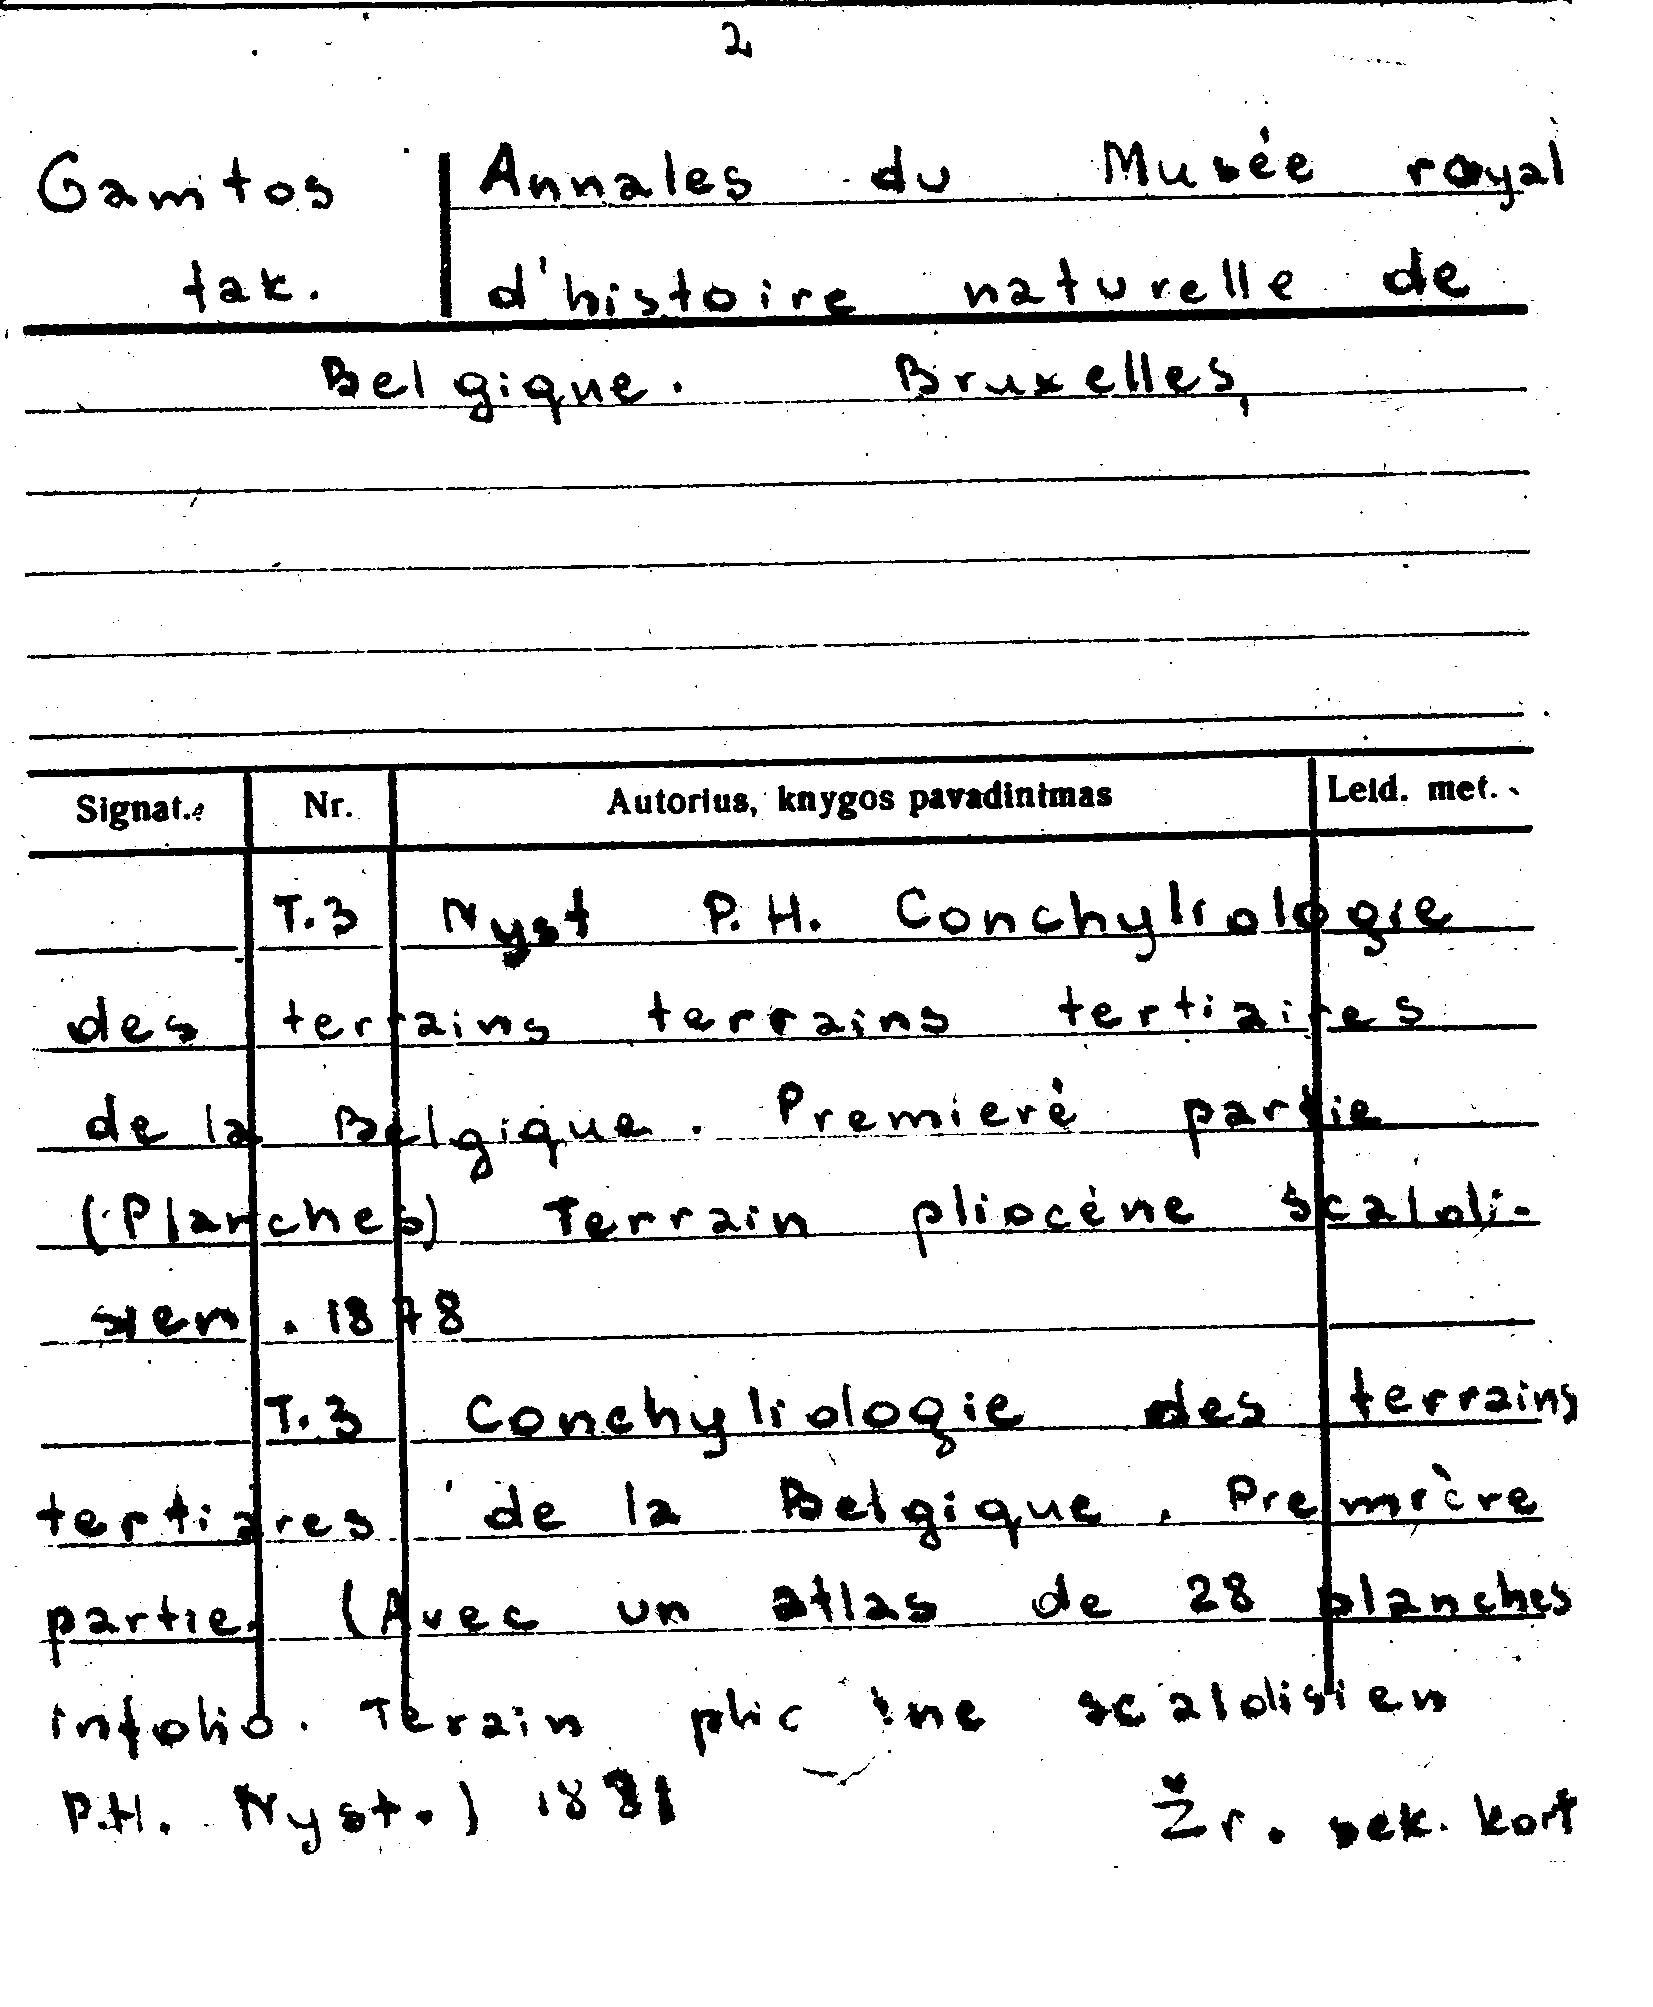 2
Gamtos Annales du Musée royal
tak. d'histoire naturelle de
Belgique. Bruxelles,
Signat. Nr. Autorius, knygos pavadinimas Leid. met.
T.3 Nyst P.H. Conchyliologie
des terrains terrains tertiaires
de la Belgique. Premierė partie
(Planches) Terrain pliocėne scaloli-
sien. 1878
T.3 Conchyliologie des terrains
tertiares de la Belgique. Première
partie. (Avec un atlas de 28 planches
infolio. Terain scaldisien
P.H. Nyst.) 1881 Žr. sek. kort